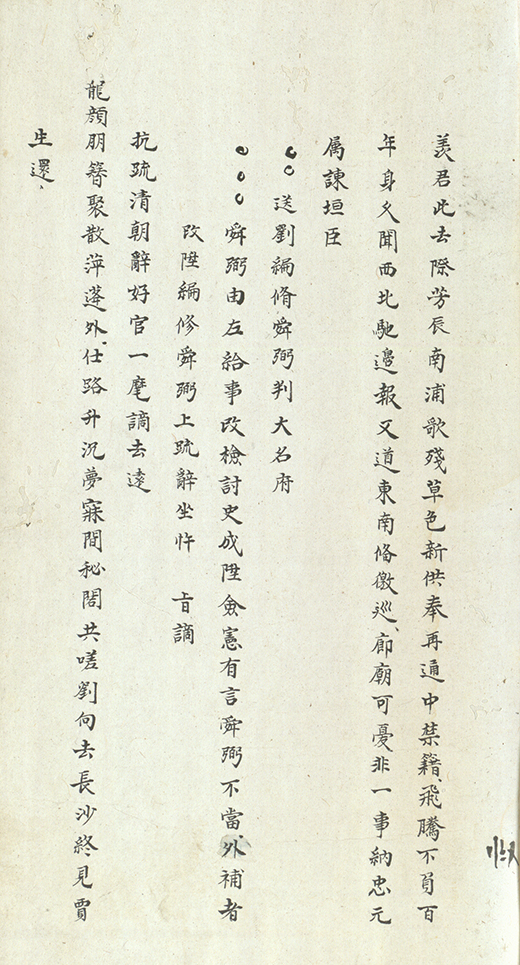 羡君此去際芳辰南浦歌殘草色新供奉再通中禁籍飛騰不負百
年身久聞西北馳邊報又道東南備徼巡廊廟可憂非一事納忠元
属諫垣臣
送劉編脩舜弼判大名府
舜弼由左給事改檢討史成陞僉憲有言舜弼不當外補者
改陞編修舜弼上疏辭坐忤 旨謫
抗疏清朝辭好官一麾謫去遠
龍顔朋簪聚散萍蓬外仕路升沉夢寐間秘閣共嗟劉向去長沙終見賈
生還